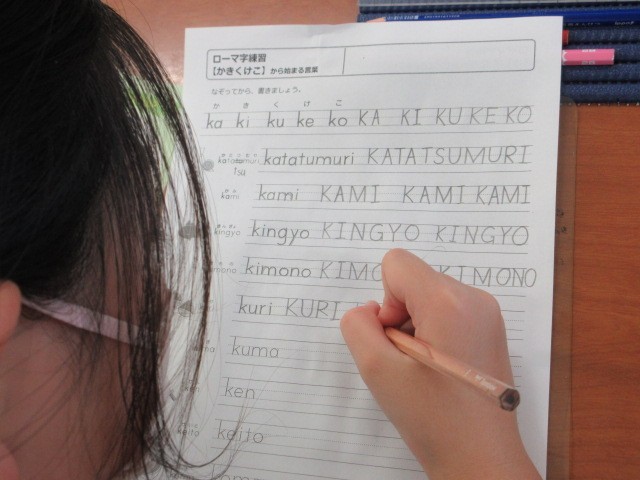 ローマ字練習
【かきくけこ】から始まる言葉
なぞってから、書きましょう。
か き く け こ
ka ki ku ke ko KA KI KU KE KO
katatumuri katatumuri KATATSUMURI
Tsu
kami kami KAMI KAMI KAMI
kingyo kingyo KINGYO KINGYO
kimono KIMONO
kuri KURI
kuma
ken
keito keito